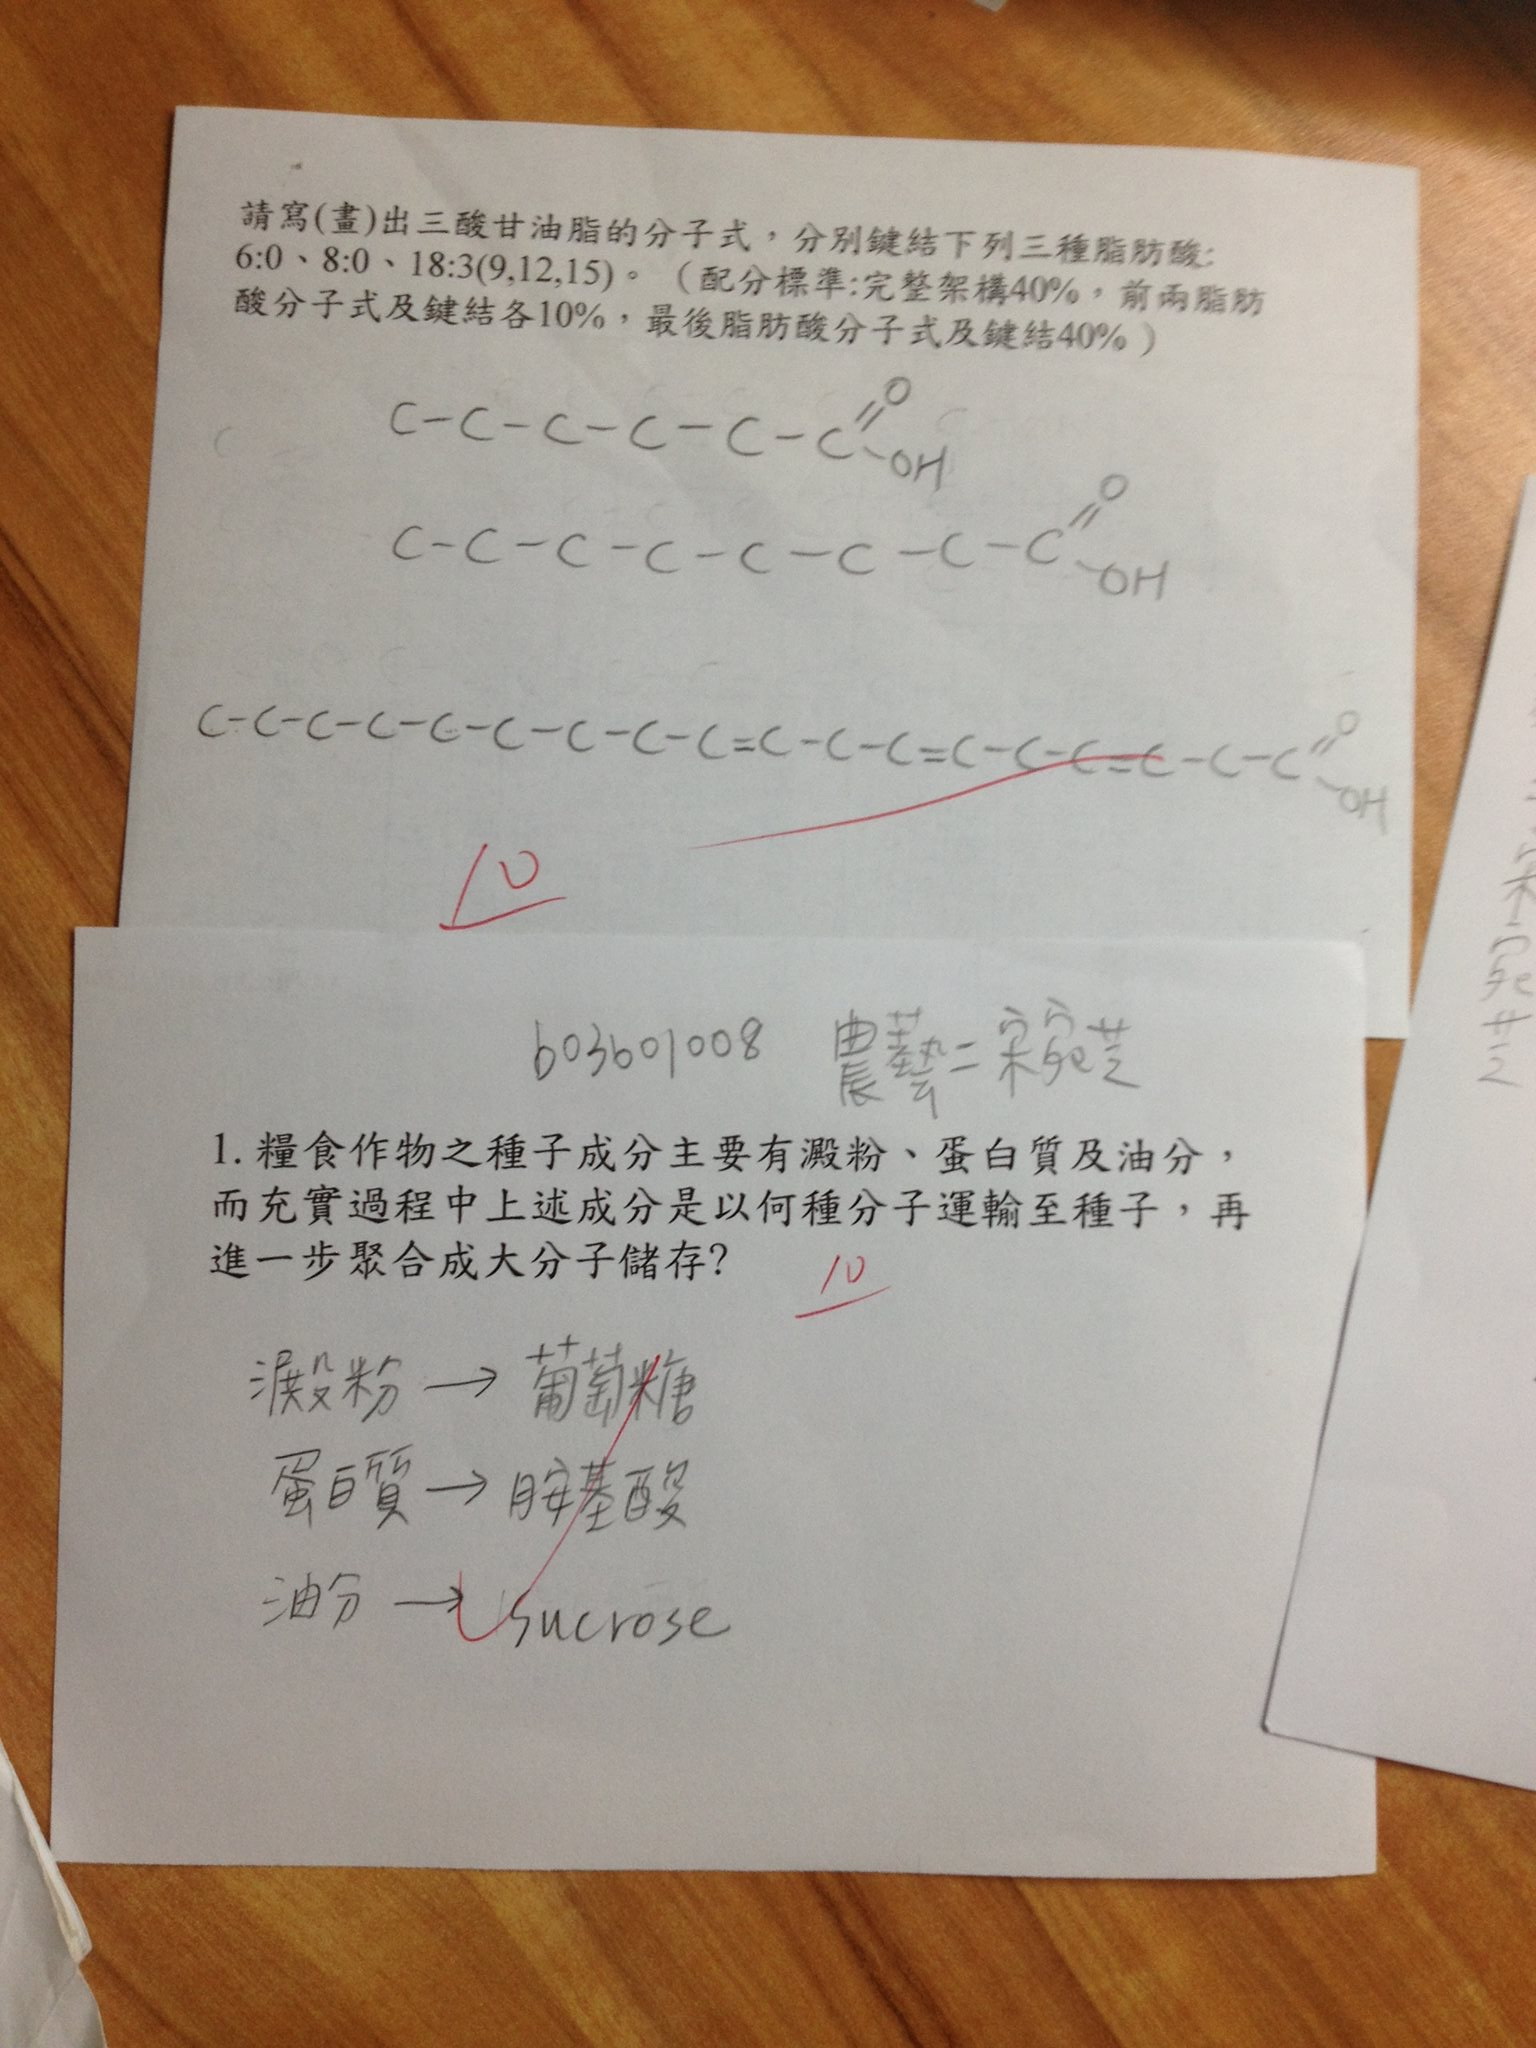 請寫(畫)出三酸甘油脂的分子式，分別鍵結下列三種脂肪酸:
6:0、8:0、18:3(9,12,15)。（配分標準:完整架構40%，前兩脂肪
酸分子式及鍵結各10%，最後脂肪酸分子式及鍵結40%）
C-C-C-C-C-C
O
OH
C-C-C-C-C-C-C-C
O
OH
C-C-C-C-C-C-C-C-C=C-C-C=C-C-C=C-C-C
O
OH
10
b03601008 農藝二 宋宛芝
1. 糧食作物之種子成分主要有澱粉、蛋白質及油分，
而充實過程中上述成分是以何種分子運輸至種子，再
進一步聚合成大分子儲存?
10
澱粉 → 葡萄糖
蛋白質 → 胺基酸
油分 → sucrose
宋宛芝